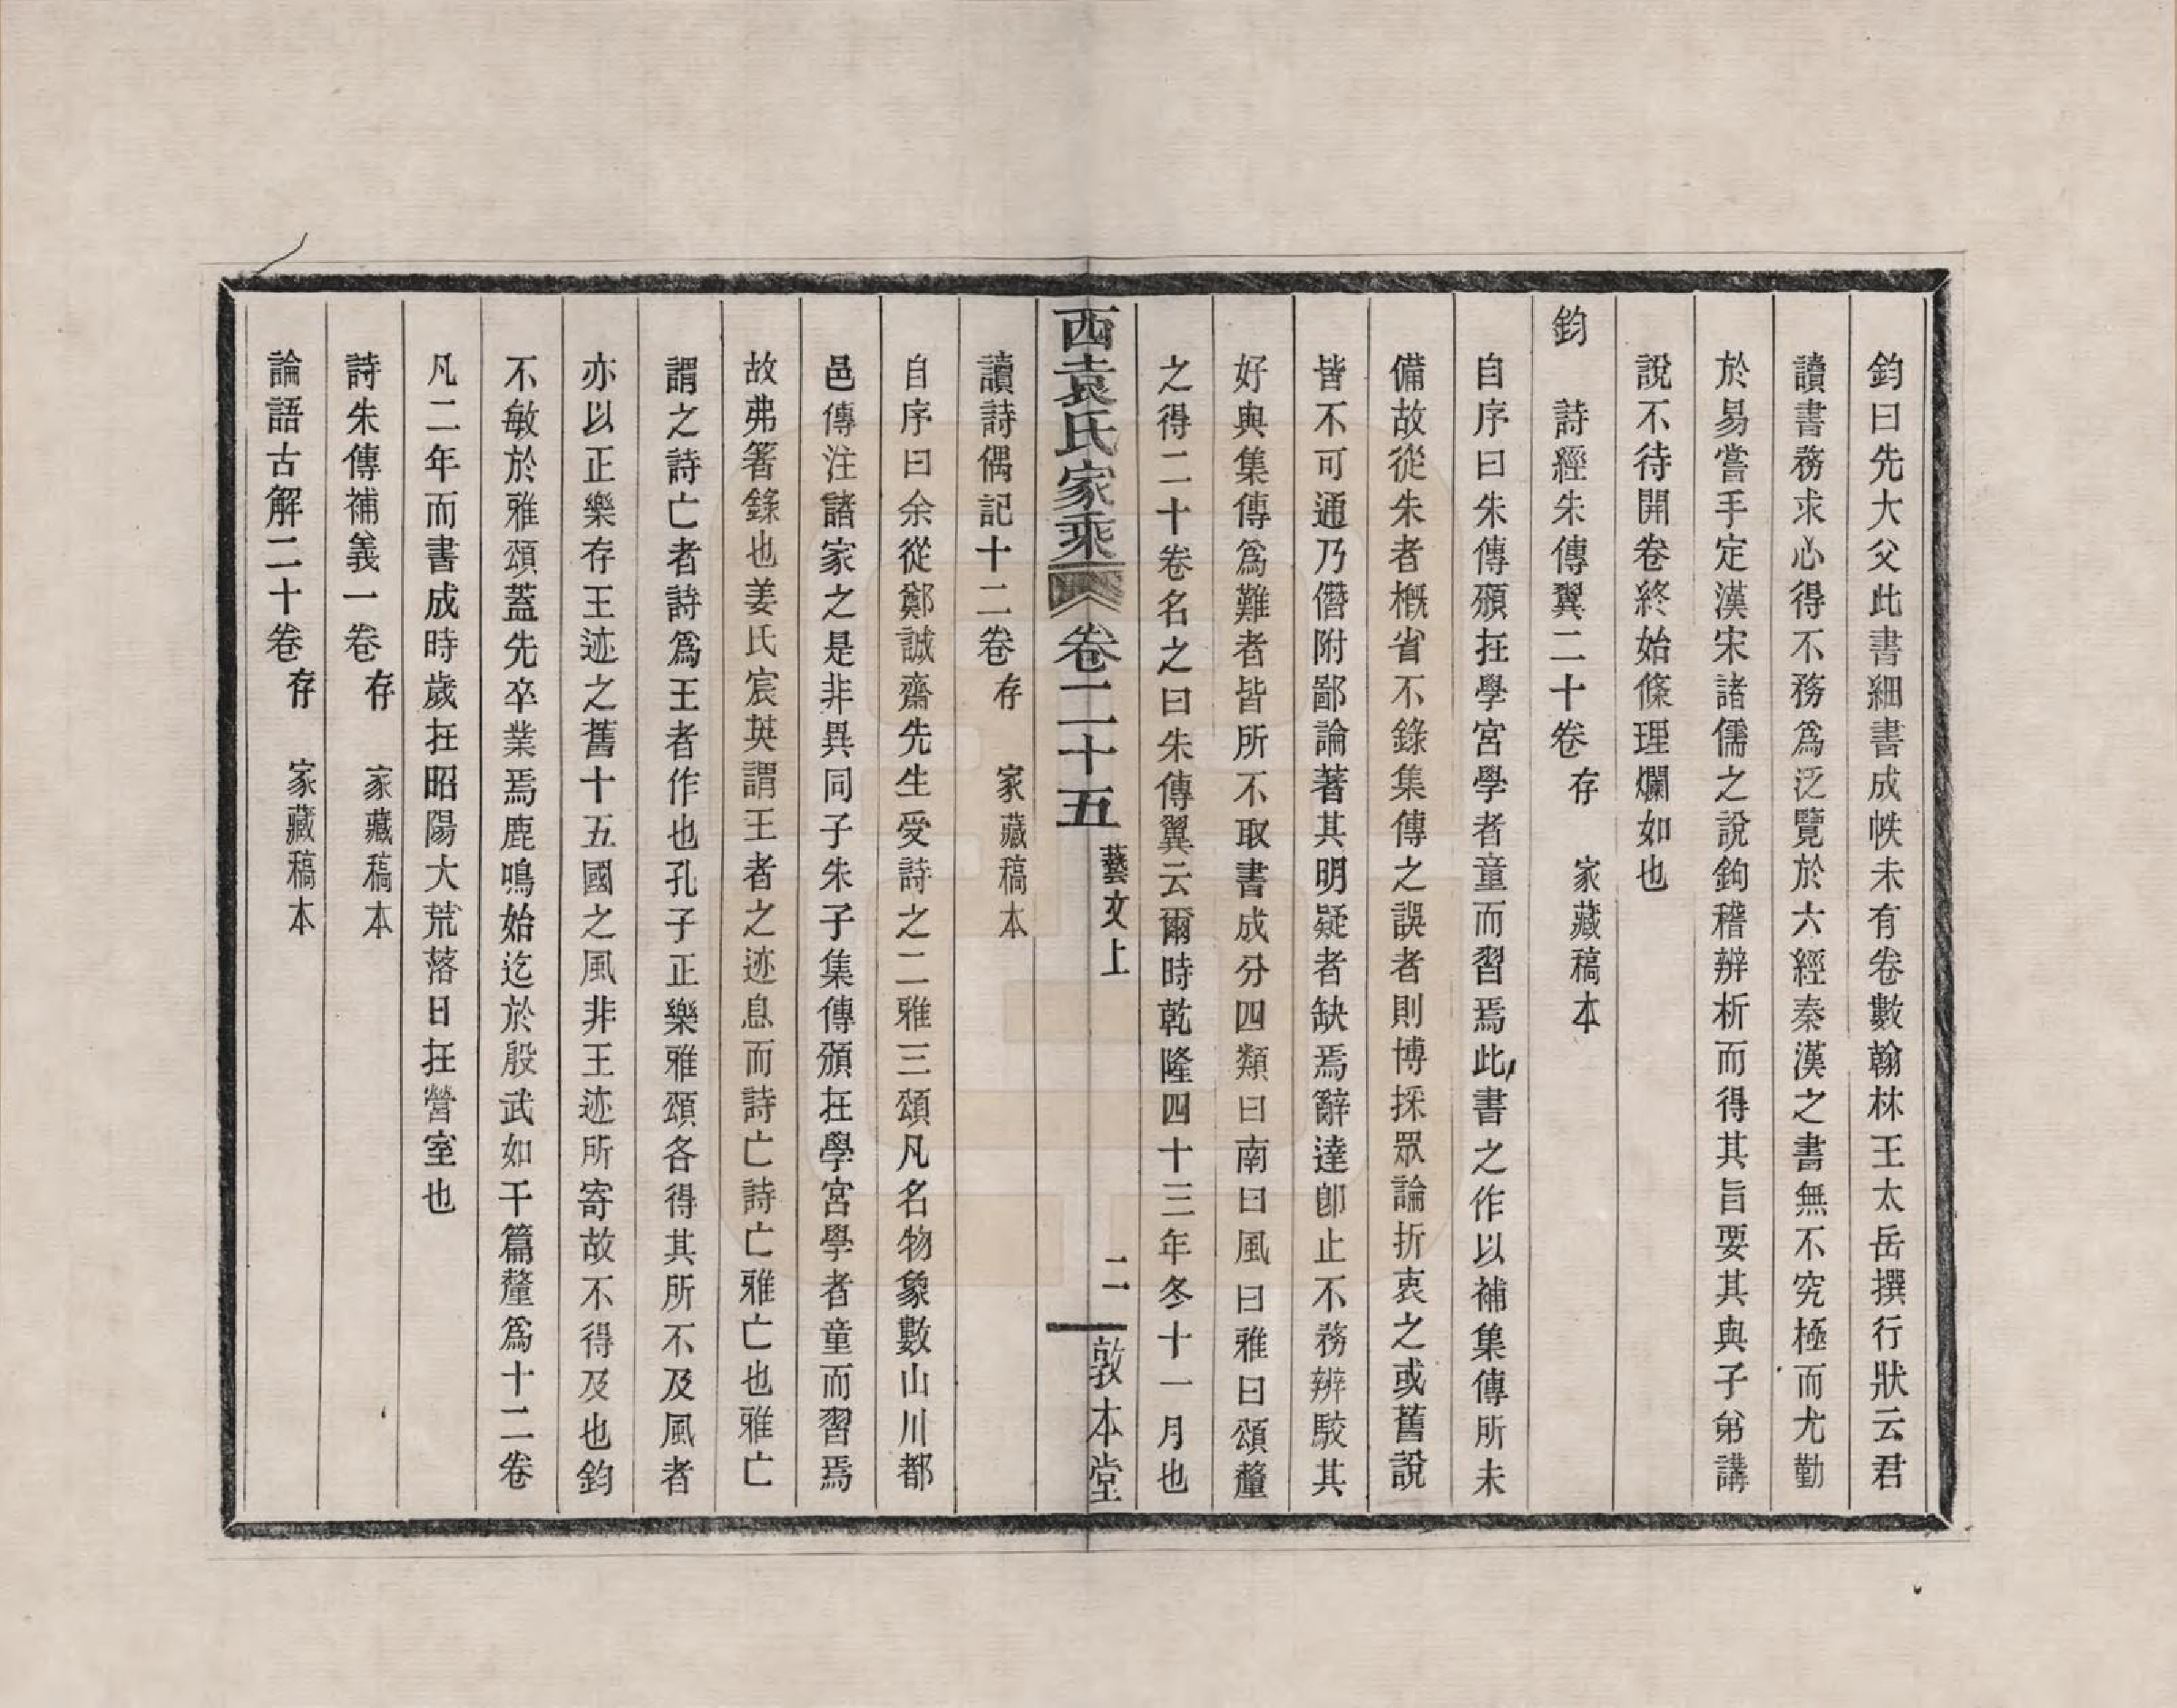 鈞曰先大父此書細書成帙未有卷數翰林王太岳撰行狀云君
讀書務求心得不務爲泛覽於六經秦漢之書無不究極而尤勤
於易嘗手定漢宋諸儒之說鉤稽辨析而得其旨要其與子弟講
說不待開卷終始條理爛如也
鈞　詩經朱傳翼二十卷存　家藏稿本
自序曰朱傳頒在學宮學者童而習焉此書之作以補集傳所未
備故從朱者槪省不錄集傳之誤者則博採眾論折衷之或舊說
皆不可通乃僭附鄙論著其明疑者缺焉辭達卽止不務辨駁其
好與集傳爲難者皆所不取書成分四類曰南曰風曰雅曰頌釐
之得二十卷名之曰朱傳翼云爾時乾隆四十三年冬十一月也
西袁氏家乘　卷二十五　藝文上　二　敦本堂
讀詩偶記十二卷存　家藏稿本
自序曰余從鄭誠齋先生受詩之二雅三頌凡名物象數山川都
邑傳注諸家之是非異同子朱子集傳頒在學宮學者童而習焉
故弗箸錄也姜氏宸英謂王者之迹息而詩亡詩亡雅亡也雅亡
謂之詩亡者詩爲王者作也孔子正樂雅頌各得其所不及風者
亦以正樂存王迹之舊十五國之風非王迹所寄故不得及也鈞
不敏於雅頌蓋先卒業焉鹿鳴始迄於殷武如干篇釐爲十二卷
凡二年而書成時歲在昭陽大荒落日在營室也
詩朱傳補義一卷存　家藏稿本
論語古解二十卷存　家藏稿本